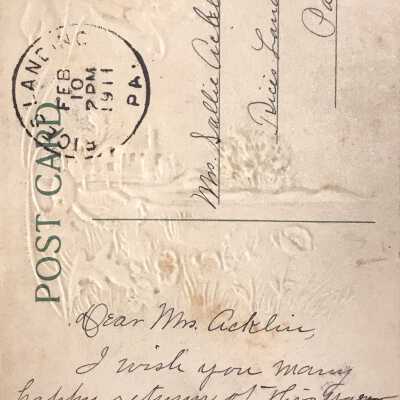 LANDING
FEB
10
7PM
1911
PA.
POST CARD
Mrs. Sallie Acklin
Rices Land
Pa
Dear Mrs. Acklin,
I wish you many
happy returns of this